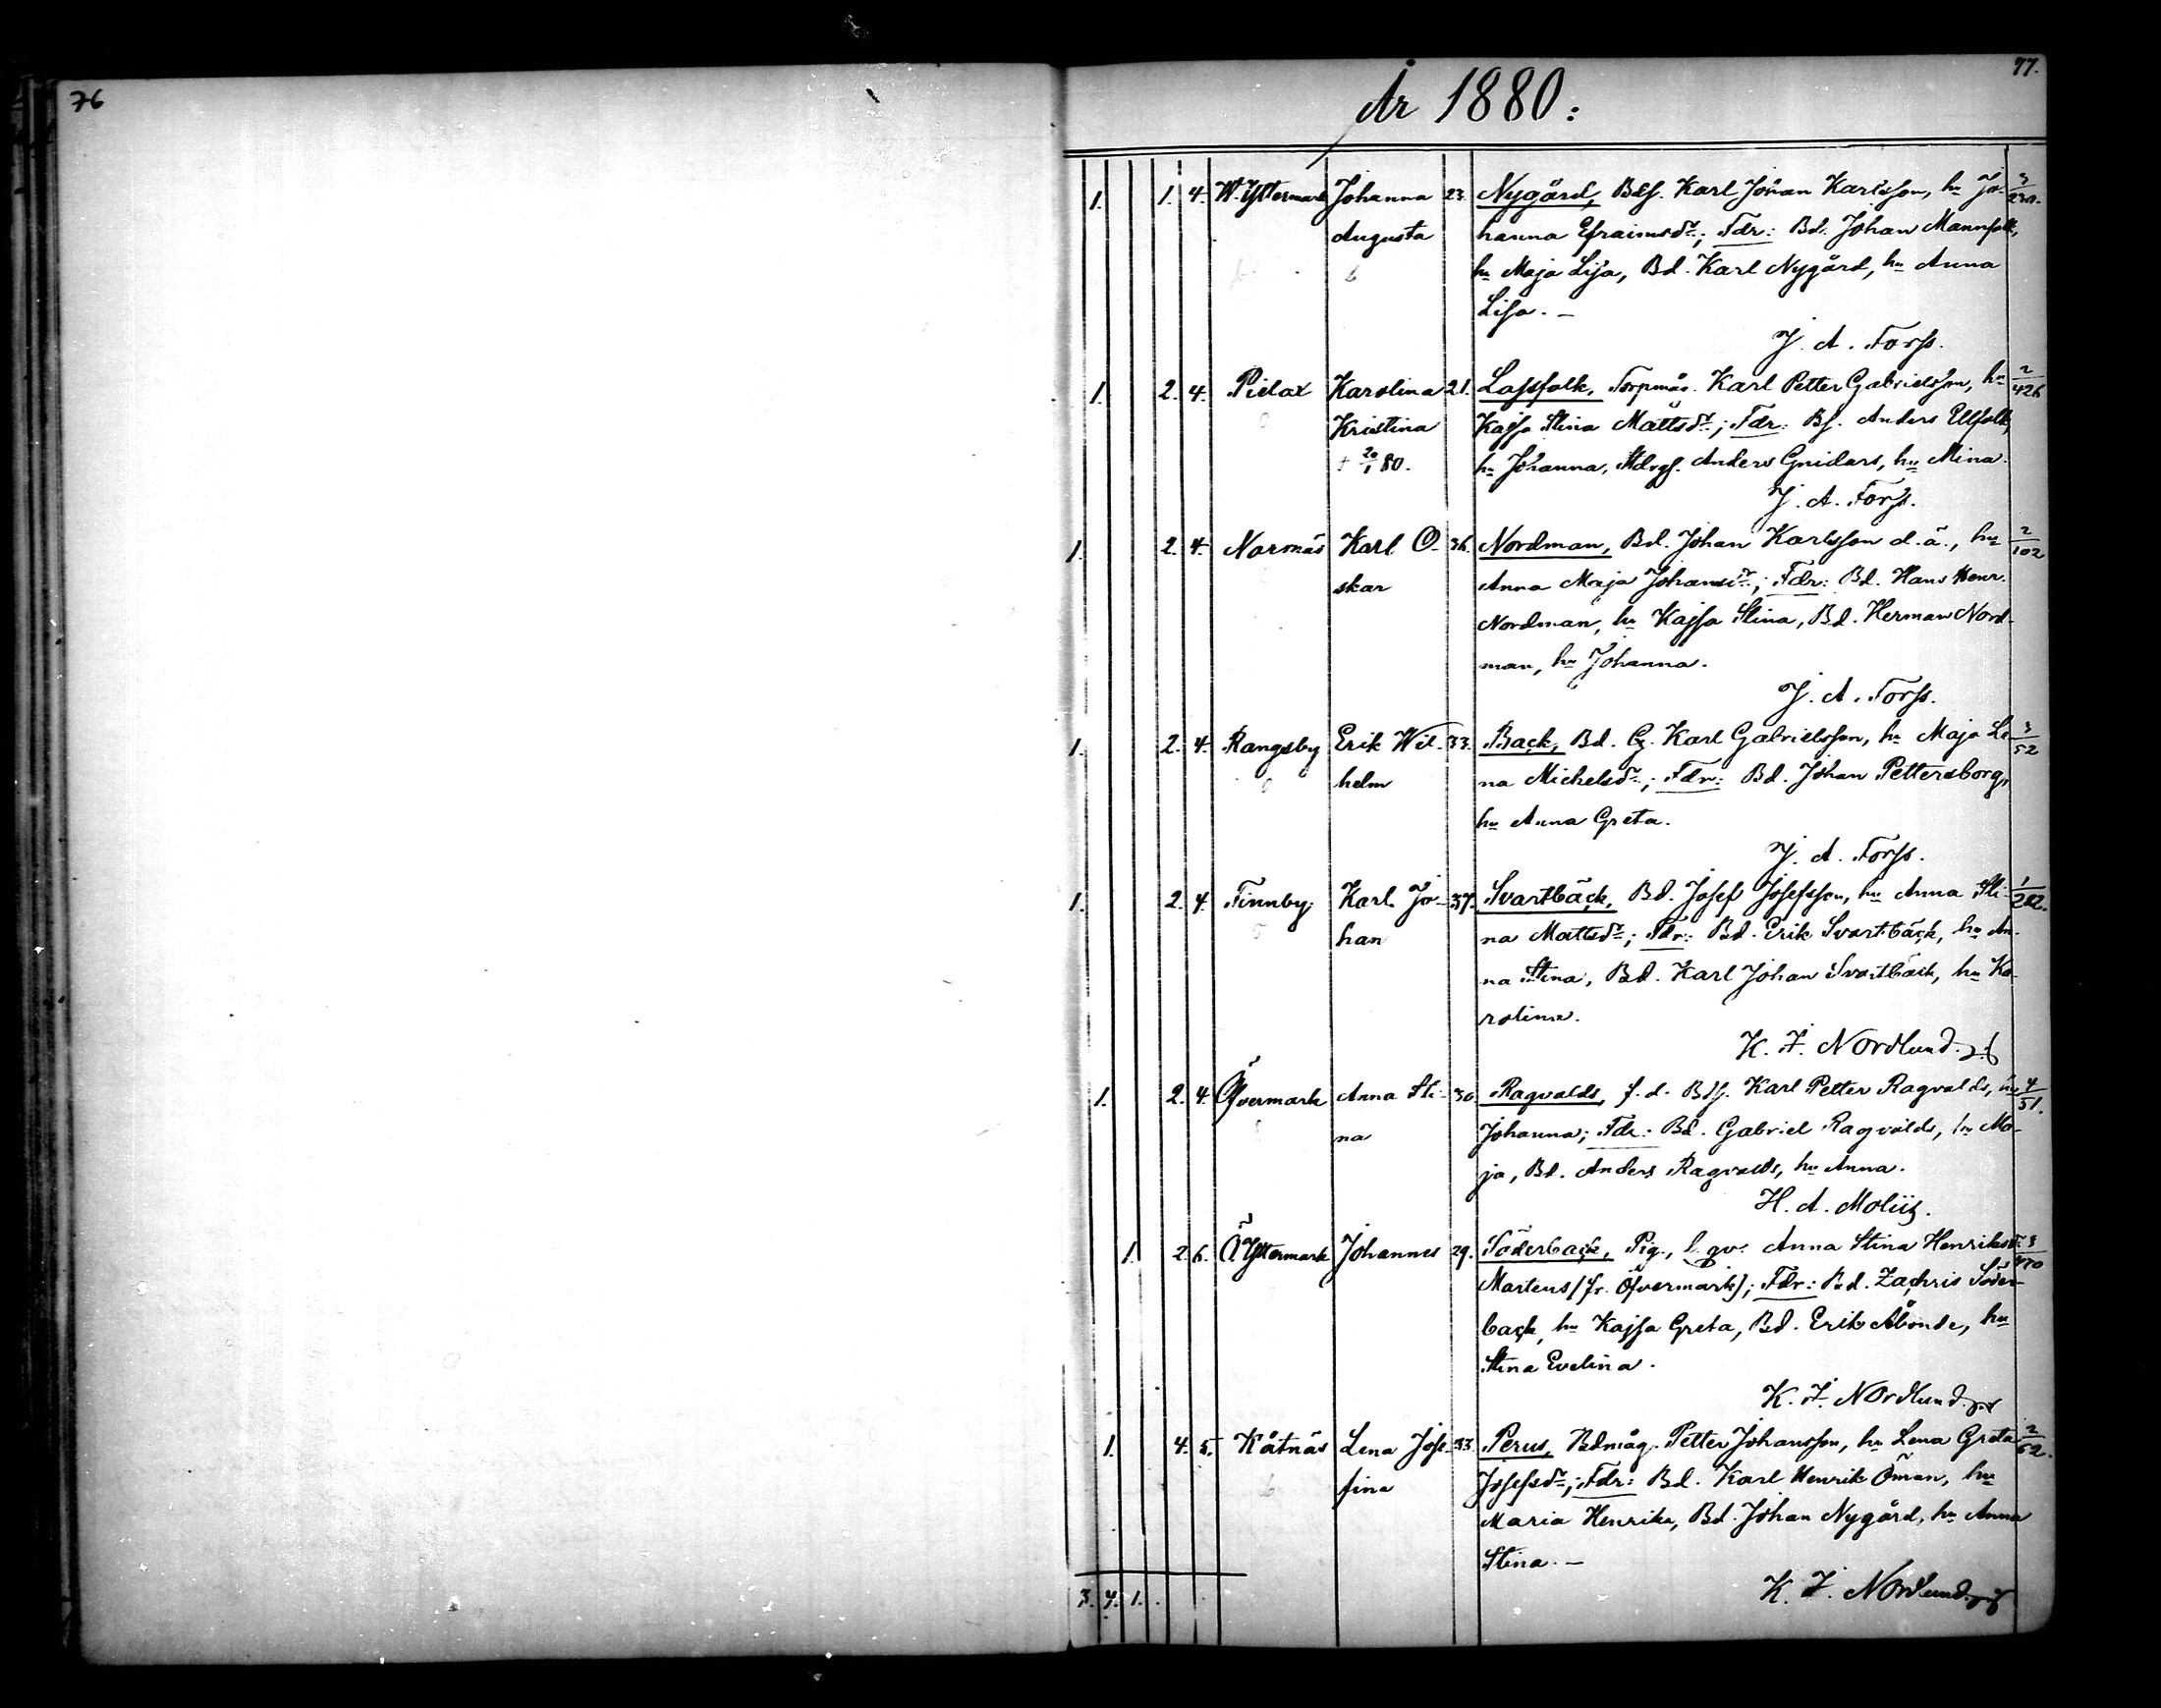 76
77.
År 1880.
1. 1. 4. W. Yttermark Johanna 23. Nygård, Bdf. Karl Johan Karlsson, hu Jo- 3/230.
Augusta hanna Efraimsdr; Fdr: Bd. Johan Mannfolk,
hu Maja Lisa, Bd. Karl Nygård, hu Anna
Lisa. —
J. A. Forss.
1. 2. 4. Pielax Karolina 21. Lassfolk, Torpmåg. Karl Petter Gabrielsson, hu 2/426
Kristina Kajsa Stina Mattsdr; Fdr: Bf. Anders Ellfolk,
+ 20/1 80. hu Johanna, Mdrgf. Anders Gnidars, hu Mina.
J. A. Forss.
1. 2. 4. Narmäs Karl O- 36. Nordman, Bd. Johan Karlsson d. ä., hu 2/102
skar Anna Maja Johansdr; Fdr: Bd. Hans Henr.
Nordman, hu Kajsa Stina, Bd. Herman Nord-
man, hu Johanna.
J. A. Forss.
1. 2. 4. Rangsby Erik Wil- 33. Back, Bd. G. Karl Gabrielsson, hu Maja Le- 3/52
helm na Michelsdr; Fdr: Bd. Johan Pettersborg,
hu Anna Greta.
J. A. Forss.
1. 2. 4. Finnby Karl Jo- 37. Svartbäck, Bd. Josef Josefsson, hu Anna Sti- 1/282.
han na Mattsdr; Fdr: Bd. Erik Svartbäck, hu An-
na Stina, Bd. Karl Johan Svartbäck, hu Ka-
rolina.
K. J. Nordlund.
1. 2. 4. Öfvermark Anna Sti- 30. Ragvalds, f. d. Bdf. Karl Petter Ragvalds, hu 4/51.
na Johanna; Fdr: Bd. Gabriel Ragvalds, hu Ma-
ja, Bd. Anders Ragvalds, hu Anna.
H. A. Moliis.
1. 2. 6. Ö. Yttermark Johannes 29. Söderback, Pig., l. qv. Anna Stina Henriksdr
Martens (fr. Öfvermark); Fdr: Bd. Zachris Söder-
back, hu Kajsa Greta, Bd. Erik Åbonde, hu
Stina Evelina.
K. J. Nordlund.
1. 4. 5. Kåtnäs Lena Jose- 33. Perus, Bdmåg. Petter Johansson, hu Lena Greta 2/62.
fina Josefsdr; Fdr: Bd. Karl Henrik Öman, hu
Maria Henrika, Bd. Johan Nygård, hu Anna
Stina. —
3. 4. 1. K. J. Nordlund.